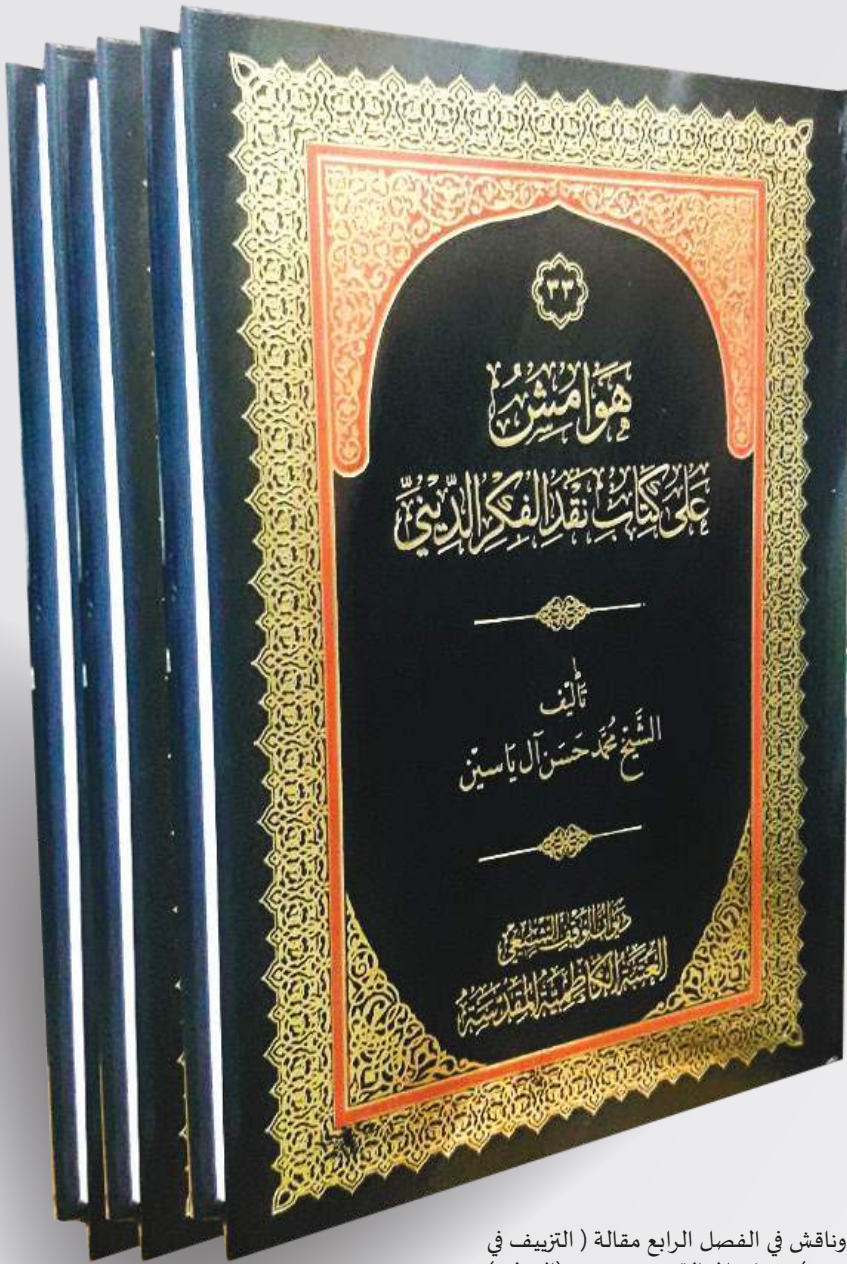 ٣٣
هَوَامِشُ
عَلَى كِتَابِ نَقْدِ الفِكْرِ الدِّينِيِّ
تَأْلِيف
الشَّيْخ مُحَمَّد حَسَن آل يَاسين
ديوان الوقف الشيعي
العتبة الكاظمية المقدسة
وناقش في الفصل الرابع مقالة ( التزييف في